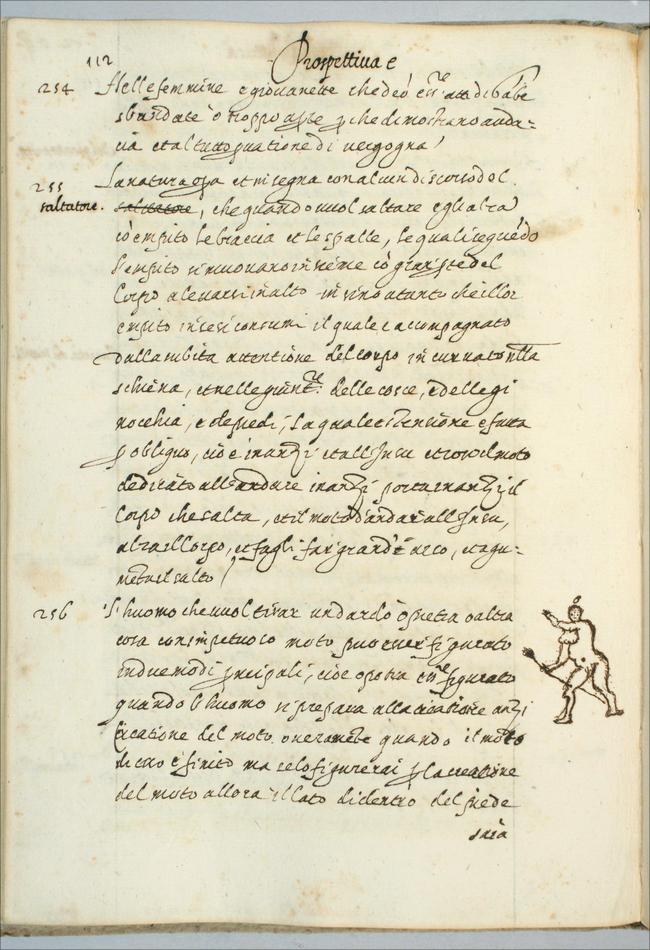 112
Prospettiva e
254 Nelle femmine e giovanette che deo atti di gābe
sbandate o troppo perche dimostrano auda=
cia et al tutto privatione di vergogna
255 La natura opa et insegna con alcun discorso del
saltatore. saltatore, che quando vuol saltare egli alza
cō empito le braccia et le spalle, le quali seguēdo
l'empito si muovano insieme cō gran pte del
Corpo a levarsi in alto in sino a tanto che il lor
empito in se si consumi il quale e accompagnato
dalla subita estentione del corpo incurvato nella
schiena, et nelle giunt.re delle cosce, e delle gi
nocchia, e de piedi, la quale estensione e fatta
p obliquo, cio è inanzi et all'insu et cosi il moto
dedicato all andare inanzi porta inanzi il
Corpo che salta, et il moto d'andar all insu,
alza il corpo, et fagli far grand'arco, et agu=
meta il salto
256 L'huomo che vuol tirar un dardo ò pietra o altra
cosa con impetuoso moto puo esser figurato
in due modi principali, cioe o potra figurato
quando l'huomo si prepara alla creatione
del moto o veramēte quando il moto
di esso è finito ma se lo figurerai p la creatione
del moto allora il lato di dentro del piede
sara